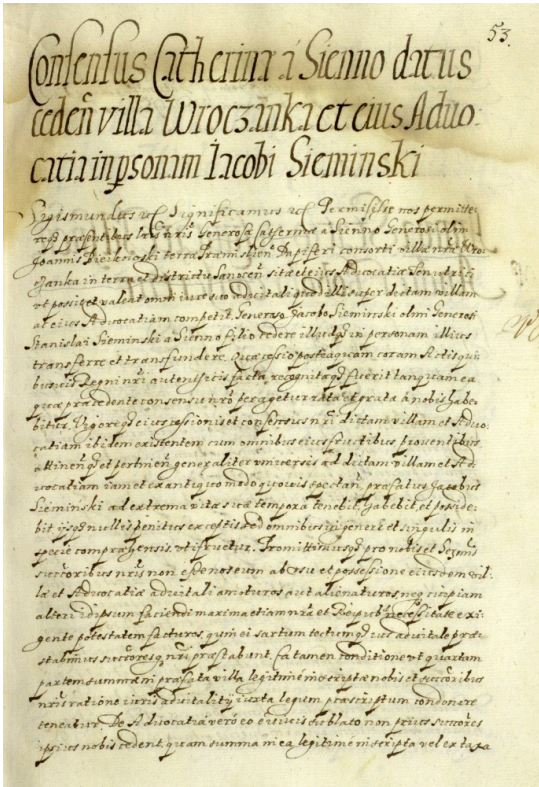 53.
Consensus Catherinæ á Sienno datus
cedeñ villa Wroczãnka et eius Aduo:
catia in p̱sonam Iacobi Sieminski
Sigismundus etc̃ Significamus etc̃ Permisisse nos permitte
reqȝ præsentibus l̃ris ñris Generosæ Catherinæ a Sienno Generosi olim
Joannis terræ Præmislieñ Dapiferi consorti villæ ñræ Wro
czanka in terra et districtu Sanoceñ sitæ et eius Aduocatiæ Genitrici
vt possit et valeat omni iure suo aduitali quod illi super dictam villam
ac eius Aduocatiam competit, Generoso Jacobo Sieminski olim Generosi
Stanislai Sieminski a Sienno filio cedere illudqȝ in personam illius
transferre et transfundere. Quæ cessio posteaquam coram Actis qui
busuis Regni ñri autenticis facta, recognitaqȝ fuerit tanquam ea
quæ præcedente consensu ñro peragetur rata et grata a nobis habe
bitur. Vigoreqȝ eius cessionis et consensus ñri dictam villam et Aduo
catiam ibidem existentem cum omnibus eius fructibus prouentibus
attineñ et pertineñ generaliter vniuersis ad dictam villam et Ad
uocatiam iam et ex antiquo modo quouis spectañ, præfatus Jacobus
Sieminski ad extrema vitæ suæ tempora tenebit, habebit et posside
bit, ijsqȝ nullis penitus exceptis sed omnibus in genere et singulis in
specie compræhensis, vtifruetur. Promittimusqȝ pro nobis et Sereñis
succoribus ñris non esse nos eum ab vsu et possessione eiusdem vil
læ et Aduocatiæ aduitali amoturos aut alienaturos neqȝ cuipiam
alteri id ipsum faciendi maxima etiam ñra et Reipubcæ necessitate exi
gente potestatem facturos quin ei sartum tectumqȝ ius aduitale præ
stabimus succoresqȝ ñri præstabunt. Ea tamen conditione vt quartam
partem summæ in præfata villa legitime inscriptæ nobis et succoribus
ñris ratione iuris aduitalitij iuxta legum præscriptum condonare
teneatur. De Aduocatia vero eo e viuis sublato non prius succores
ipsius nobis cedent, quam summa in ea legitime inscripta vel ex taxa